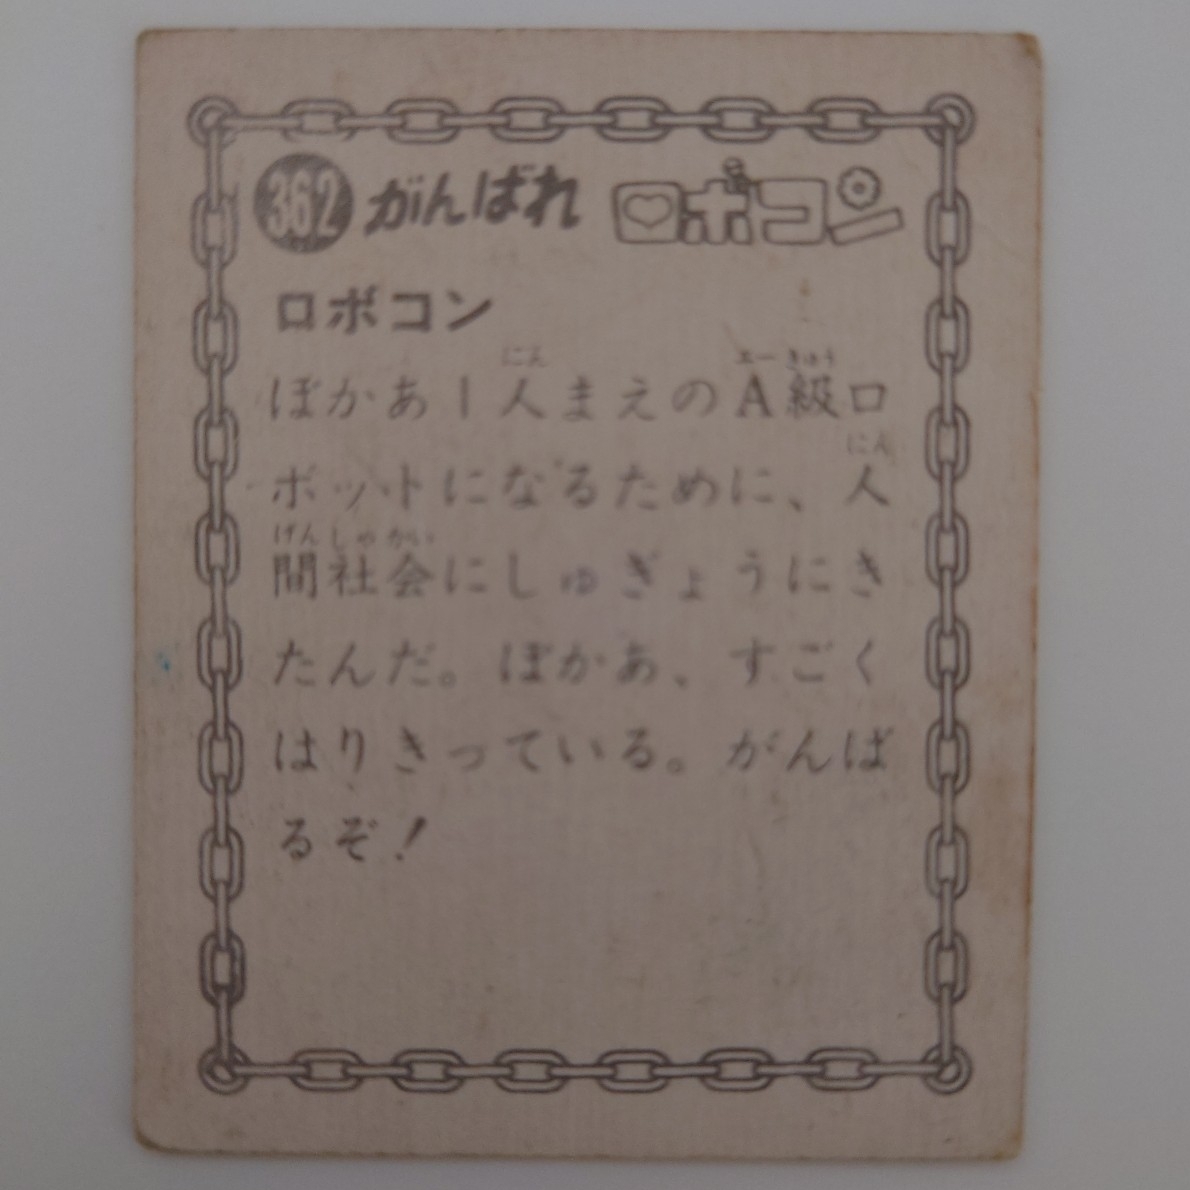 362 がんばれ ロボコン
ロボコン
ぼかあ1人まえのA級ロ
ボットになるために、人
間社会にしゅぎょうにき
たんだ。ぼかあ、すごく
はりきっている。がんば
るぞ！